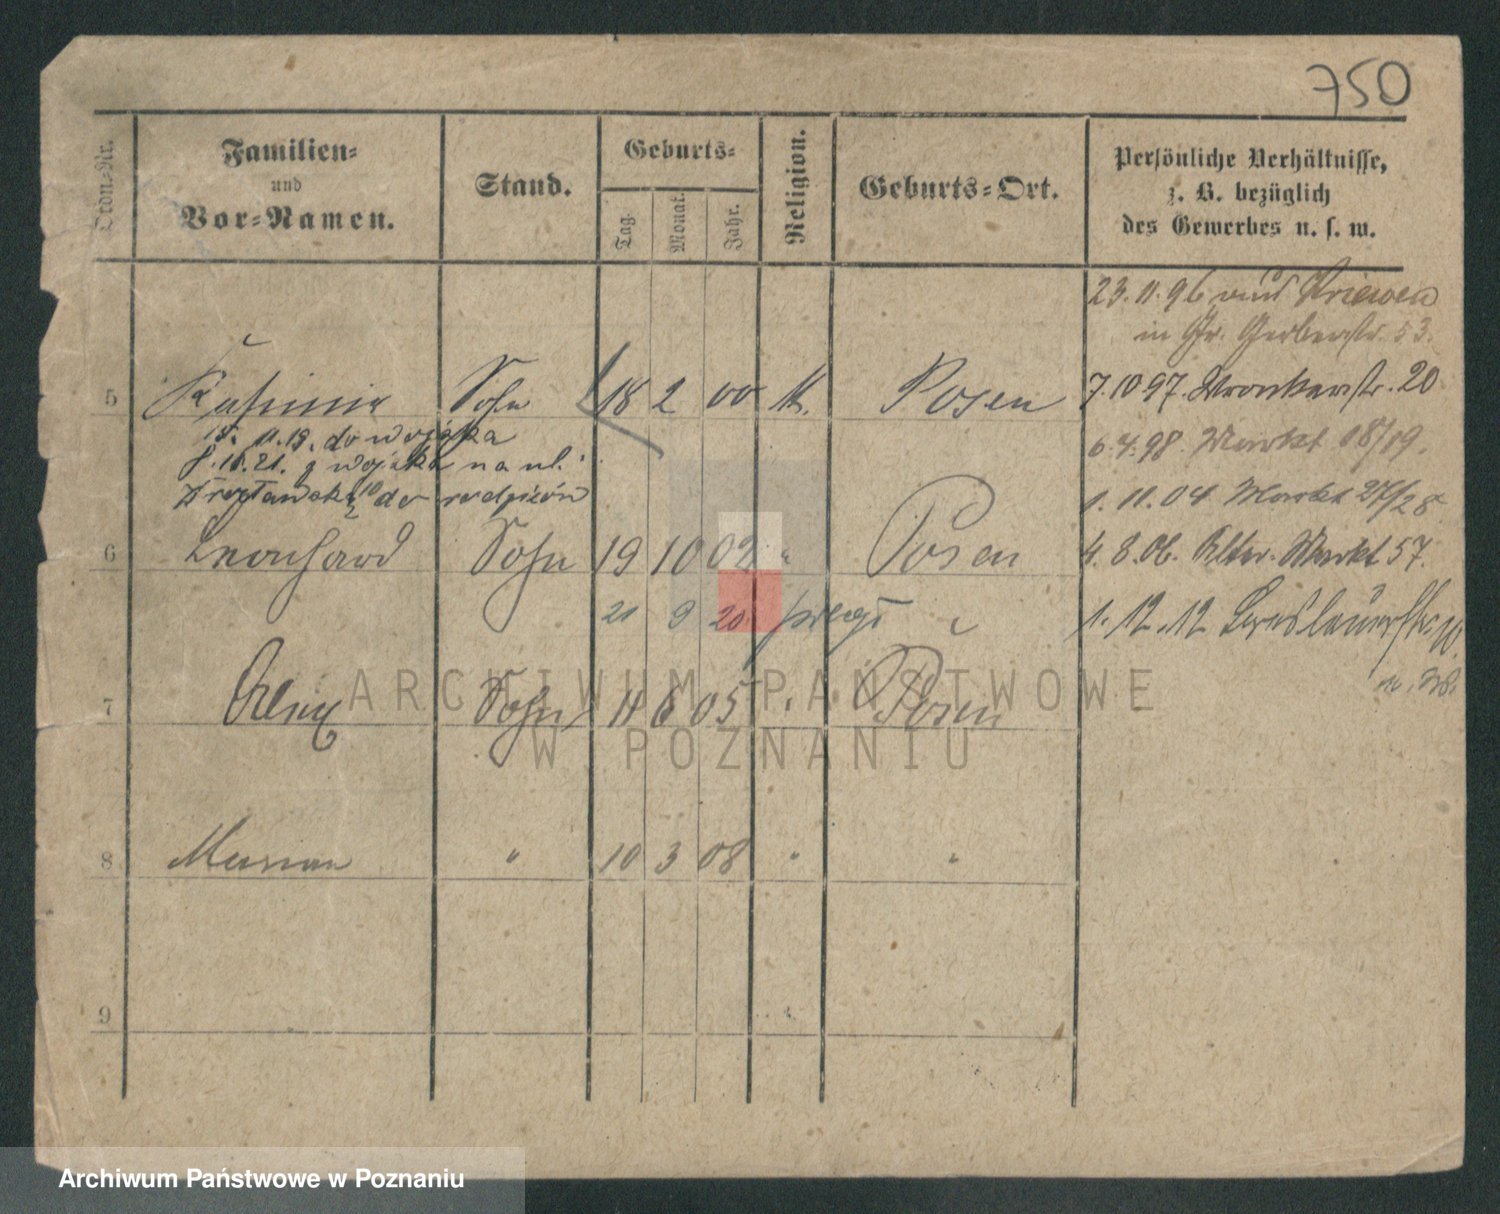 750
Ordn.-Nr.
Familien-
und
Vor-Namen.
Stand.
Geburts-
Tag.
Monat.
Jahr.
Religion.
Geburts-Ort.
Persönliche Verhältnisse,
z. B. bezüglich
des Gewerbes u. s. w.
23. 11. 96 aus Kriewen
in Gr. Gerberstr. 53.
7. 10 97. Wronkerstr. 20
6. 4. 98. Markt 18/19.
1. 11. 04 Markt 27/28
4. 8. 06. Alter Markt 57.
1. 12. 12 Breslauerstr.
5 Kasimir Sohn 18 2 00 k. Posen
15. 11. 19. do wojska
8. 11. 21. z wojska na ul.
10 do rodziców
6 Leonhard Sohn 19 10 02 " Posen
21 9 20
7 Alex Sohn 11 6 05 " Posen
8 Marian " 10 3 08 " "
9
ARCHIWUM PAŃSTWOWE
W POZNANIU
Archiwum Państwowe w Poznaniu